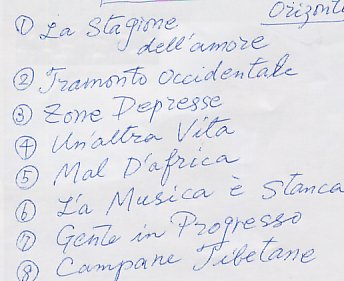 Orizont
① La Stagione
dell'amore
② Tramonto occidentale
③ Zone Depresse
④ Un'altra Vita
⑤ Mal D'africa
⑥ La Musica è Stanca
⑦ Gente in Progresso
⑧ Campane Tibetane